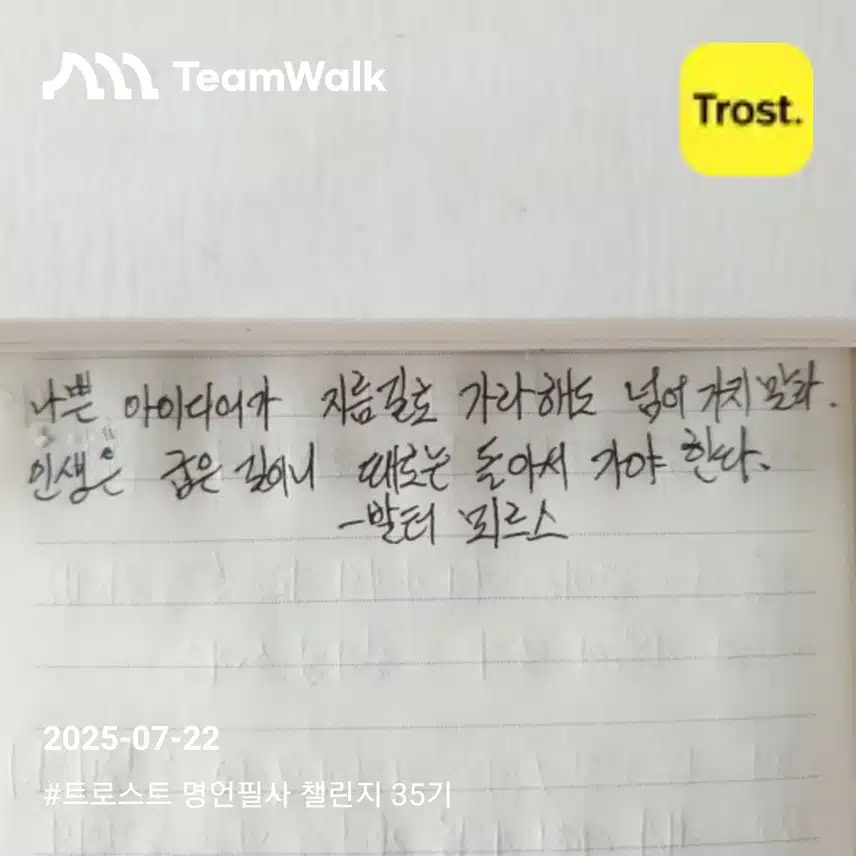 TeamWalk
Trost.
나쁜 아이디어가 지름길로 가라해도 넘어 가지 말라.
인생은 굽은 길이니 때로는 돌아서 가야 한다.
-발터 뫼르스
2025-07-22
#트로스트 명언필사 챌린지 35기